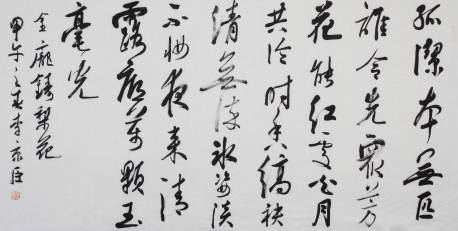 孤潔本無匹
誰令先眾芳
花能紅處白月
共冷時香縞袂
清無染冰姿淡
不妝夜來清
露底萬顆玉
毫光
金龐鑄梨花
甲午之春李